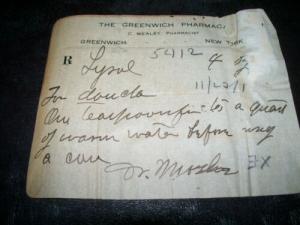 THE GREENWICH PHARMACY
C. MEALEY, PHARMACIST
GREENWICH NEW YORK
5412
R Lysol 4 oz
11/22/1
For douche
One teaspoonful to a quart
of warm water before using
a
Dr.